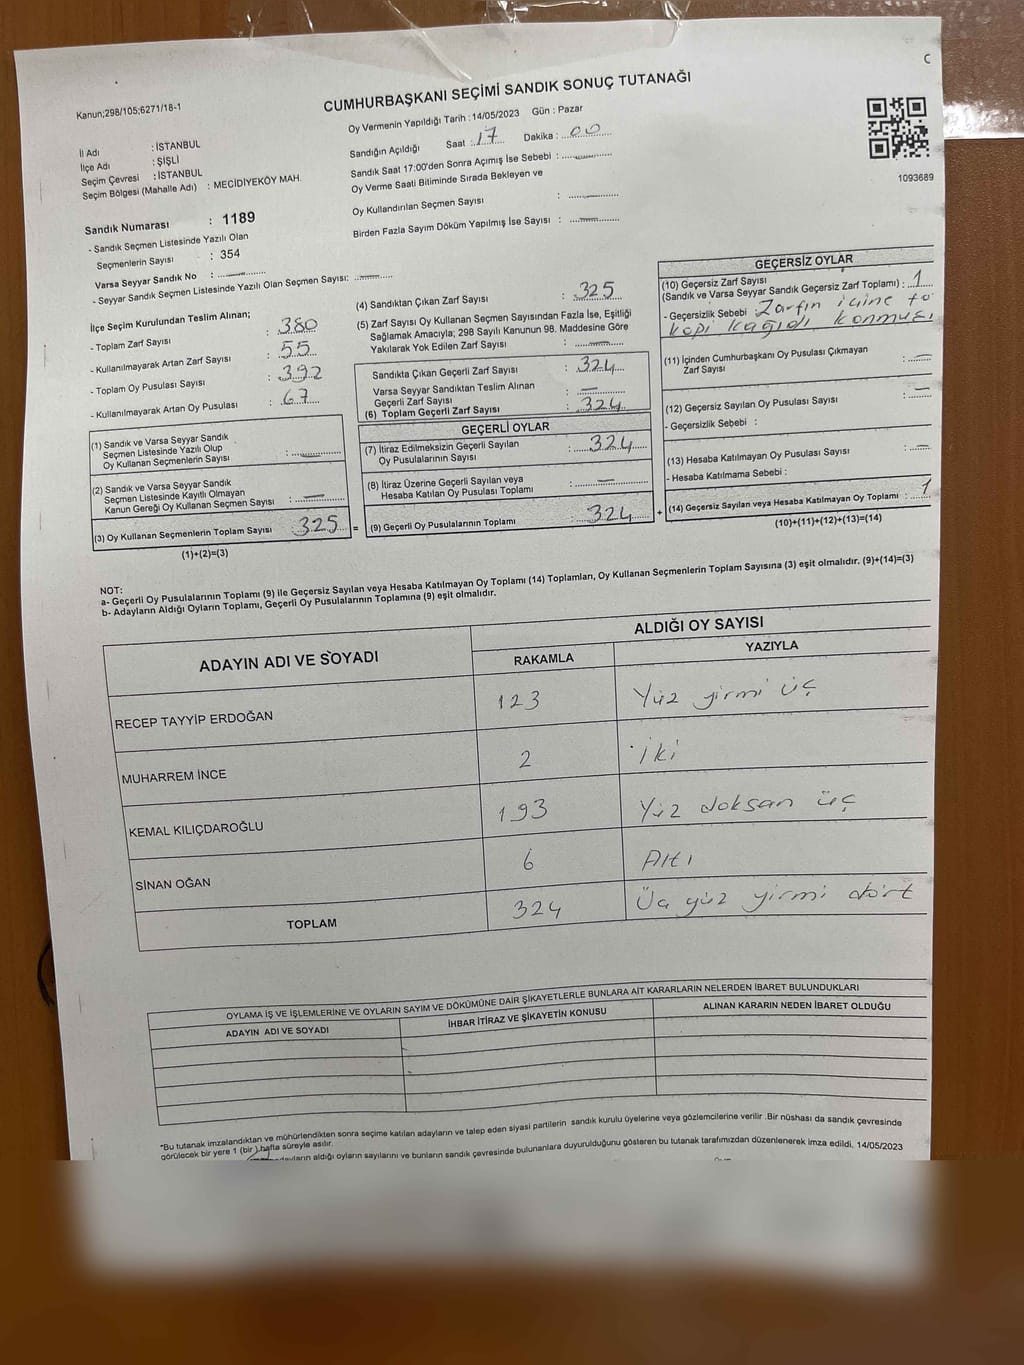 C
Kanun;298/105;6271/18-1
CUMHURBAŞKANI SEÇİMİ SANDIK SONUÇ TUTANAĞI
Oy Vermenin Yapıldığı Tarih :14/05/2023 Gün : Pazar
Sandığın Açıldığı Saat : 17 Dakika : 00
Sandık Saat 17:00'den Sonra Açımış İse Sebebi :
Oy Verme Saati Bitiminde Sırada Bekleyen ve
Oy Kullandırılan Seçmen Sayısı :
Birden Fazla Sayım Döküm Yapılmış İse Sayısı :
İl Adı : İSTANBUL
İlçe Adı : ŞİŞLİ
Seçim Çevresi : İSTANBUL
Seçim Bölgesi (Mahalle Adı) : MECİDİYEKÖY MAH.
1093689
Sandık Numarası : 1189
- Sandık Seçmen Listesinde Yazılı Olan
Seçmenlerin Sayısı : 354
Varsa Seyyar Sandık No :
- Seyyar Sandık Seçmen Listesinde Yazılı Olan Seçmen Sayısı:
İlçe Seçim Kurulundan Teslim Alınan;
- Toplam Zarf Sayısı : 380
- Kullanılmayarak Artan Zarf Sayısı : 55
- Toplam Oy Pusulası Sayısı : 392
- Kullanılmayarak Artan Oy Pusulası : 67
(1) Sandık ve Varsa Seyyar Sandık
Seçmen Listesinde Yazılı Olup
Oy Kullanan Seçmenlerin Sayısı :
(2) Sandık ve Varsa Seyyar Sandık
Seçmen Listesinde Kayıtlı Olmayan
Kanun Gereği Oy Kullanan Seçmen Sayısı : —
(3) Oy Kullanan Seçmenlerin Toplam Sayısı 325 =
(1)+(2)=(3)
(4) Sandıktan Çıkan Zarf Sayısı : 325
(5) Zarf Sayısı Oy Kullanan Seçmen Sayısından Fazla İse, Eşitliği
Sağlamak Amacıyla; 298 Sayılı Kanunun 98. Maddesine Göre
Yakılarak Yok Edilen Zarf Sayısı : —
Sandıkta Çıkan Geçerli Zarf Sayısı : 324
Varsa Seyyar Sandıktan Teslim Alınan
Geçerli Zarf Sayısı : —
(6) Toplam Geçerli Zarf Sayısı : 324
GEÇERLİ OYLAR
(7) İtiraz Edilmeksizin Geçerli Sayılan
Oy Pusulalarının Sayısı : 324
(8) İtiraz Üzerine Geçerli Sayılan veya
Hesaba Katılan Oy Pusulası Toplamı : —
(9) Geçerli Oy Pusulalarının Toplamı 324 +
GEÇERSİZ OYLAR
(10) Geçersiz Zarf Sayısı
(Sandık ve Varsa Seyyar Sandık Geçersiz Zarf Toplamı) : 1
- Geçersizlik Sebebi : Zarfın içine
kağıdı konmuş
(11) İçinden Cumhurbaşkanı Oy Pusulası Çıkmayan
Zarf Sayısı : —
(12) Geçersiz Sayılan Oy Pusulası Sayısı : —
- Geçersizlik Sebebi :
(13) Hesaba Katılmayan Oy Pusulası Sayısı : —
- Hesaba Katılmama Sebebi :
(14) Geçersiz Sayılan veya Hesaba Katılmayan Oy Toplamı : 1
(10)+(11)+(12)+(13)=(14)
NOT:
a- Geçerli Oy Pusulalarının Toplamı (9) ile Geçersiz Sayılan veya Hesaba Katılmayan Oy Toplamı (14) Toplamları, Oy Kullanan Seçmenlerin Toplam Sayısına (3) eşit olmalıdır. (9)+(14)=(3)
b- Adayların Aldığı Oyların Toplamı, Geçerli Oy Pusulalarının Toplamına (9) eşit olmalıdır.
ADAYIN ADI VE SOYADI
ALDIĞI OY SAYISI
RAKAMLA YAZIYLA
RECEP TAYYİP ERDOĞAN 123 Yüz yirmi üç
MUHARREM İNCE 2 iki
KEMAL KILIÇDAROĞLU 193 Yüz doksan üç
SİNAN OĞAN 6 Altı
TOPLAM 324 Üç yüz yirmi dört
OYLAMA İŞ VE İŞLEMLERİNE VE OYLARIN SAYIM VE DÖKÜMÜNE DAİR ŞİKAYETLERLE BUNLARA AİT KARARLARIN NELERDEN İBARET BULUNDUKLARI
ADAYIN ADI VE SOYADI İHBAR İTİRAZ VE ŞİKAYETİN KONUSU ALINAN KARARIN NEDEN İBARET OLDUĞU
*Bu tutanak imzalandıktan ve mühürlendikten sonra seçime katılan adayların ve talep eden siyasi partilerin sandık kurulu üyelerine veya gözlemcilerine verilir .Bir nüshası da sandık çevresinde
görülecek bir yere 1 (bir ) hafta süreyle asılır.
adayların aldığı oyların sayılarını ve bunların sandık çevresinde bulunanlara duyurulduğunu gösteren bu tutanak tarafımızdan düzenlenerek imza edildi. 14/05/2023